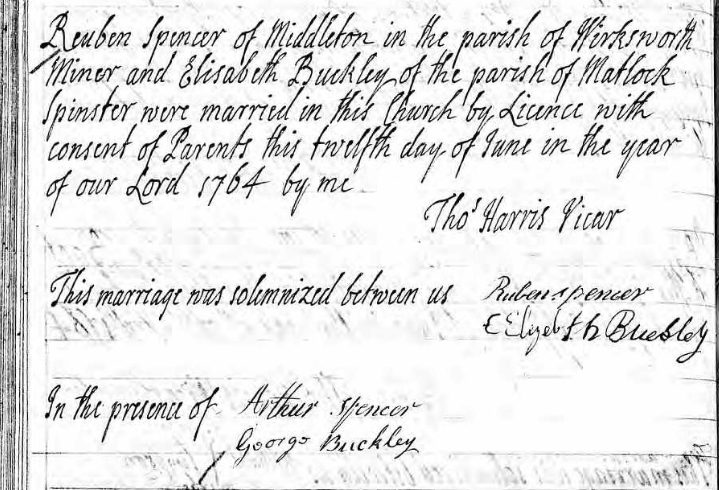 Reuben Spencer of Middleton in the parish of Wirksworth
Miner and Elisabeth Buckley of the parish of Matlock
Spinster were married in this Church by Licence with
consent of Parents this twelfth day of June in the year
of our Lord 1764 by me
Thos Harris Vicar
This marriage was solemnized between us Ruben spencer
Elizebeth Buckley
In the presence of Arthur Spencer
George Buckley